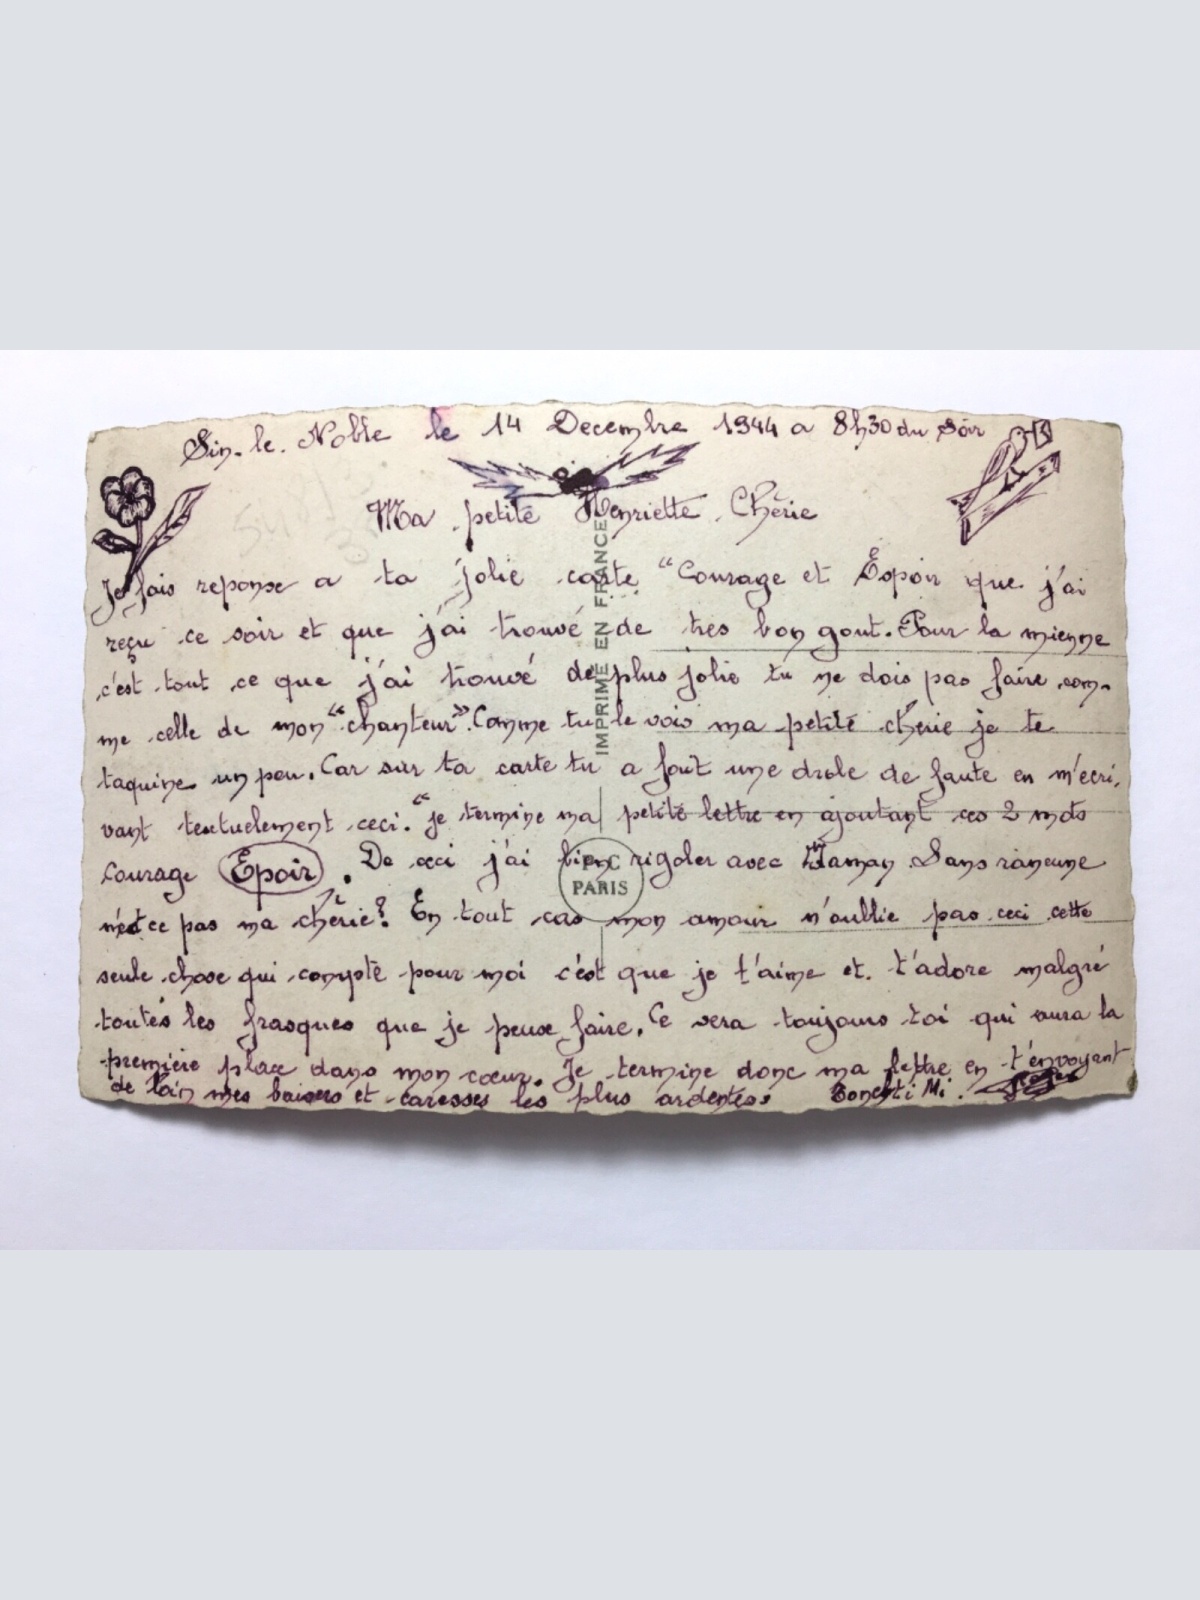 Sin. le. Noble le 14 Decembre 1944 a 8h30 du Soir
Ma petite Henriette Chérie
Je fais reponse a ta jolie carte "Courage et Espoir que j'ai
reçu ce soir et que j'ai trouvé de tres bon gout. Pour la mienne
c'est tout ce que j'ai trouvé de plus jolie tu ne dois pas faire com-
me celle de mon "chanteur". Comme tu le vois ma petite chérie je te
taquine un peu. Car sur ta carte tu a fait une drole de faute en m'ecri-
vant textuelement ceci. "je termine ma petite lettre en ajoutant ces 2 mots
Courage Epoir. De ceci j'ai bien rigoler avec Maman Sans rancune
n'est ce pas ma chérie? En tout cas mon amour n'oublie pas ceci cette
seule chose qui compte pour moi c'est que je t'aime et. t'adore malgré
toutes les frasques que je peux faire. Ce sera toujours toi qui aura la
première place dans mon cœur. Je termine donc ma lettre en t'envoyant
de loin mes baisers et caresses les plus ardentes. Ton Mi.
IMPRIMÉ EN FRANCE
PC
PARIS